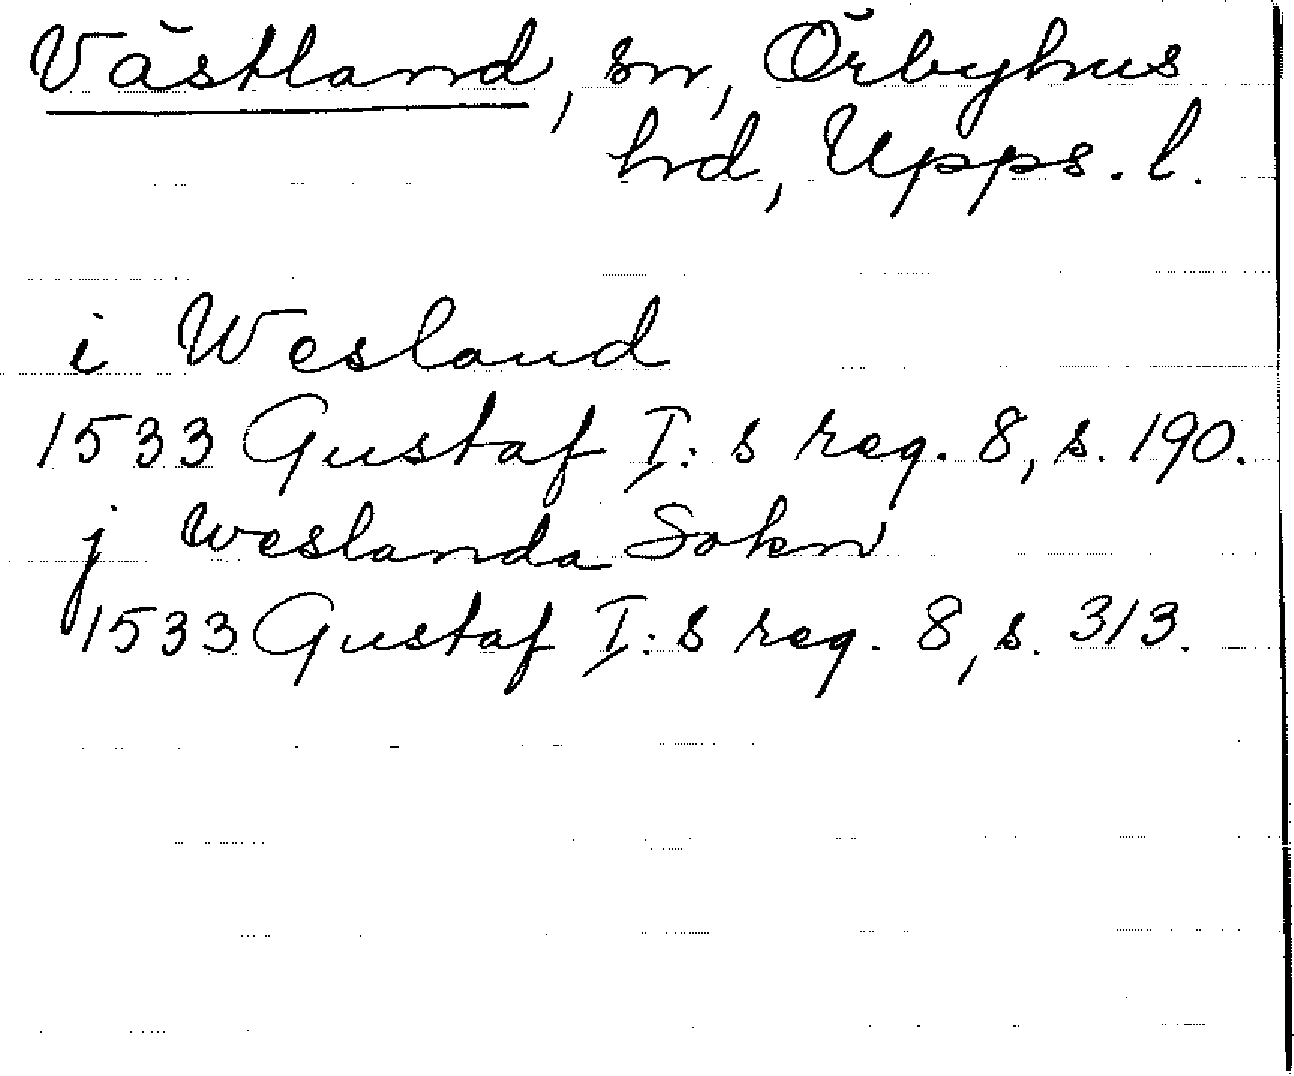 Västland, sn, Örbyhus
hd, Upps. l.
i Wesland
1533 Gustaf I:s reg. 8, s. 190.
j weslanda Sokn
1533 Gustaf I:s reg. 8, s. 313.